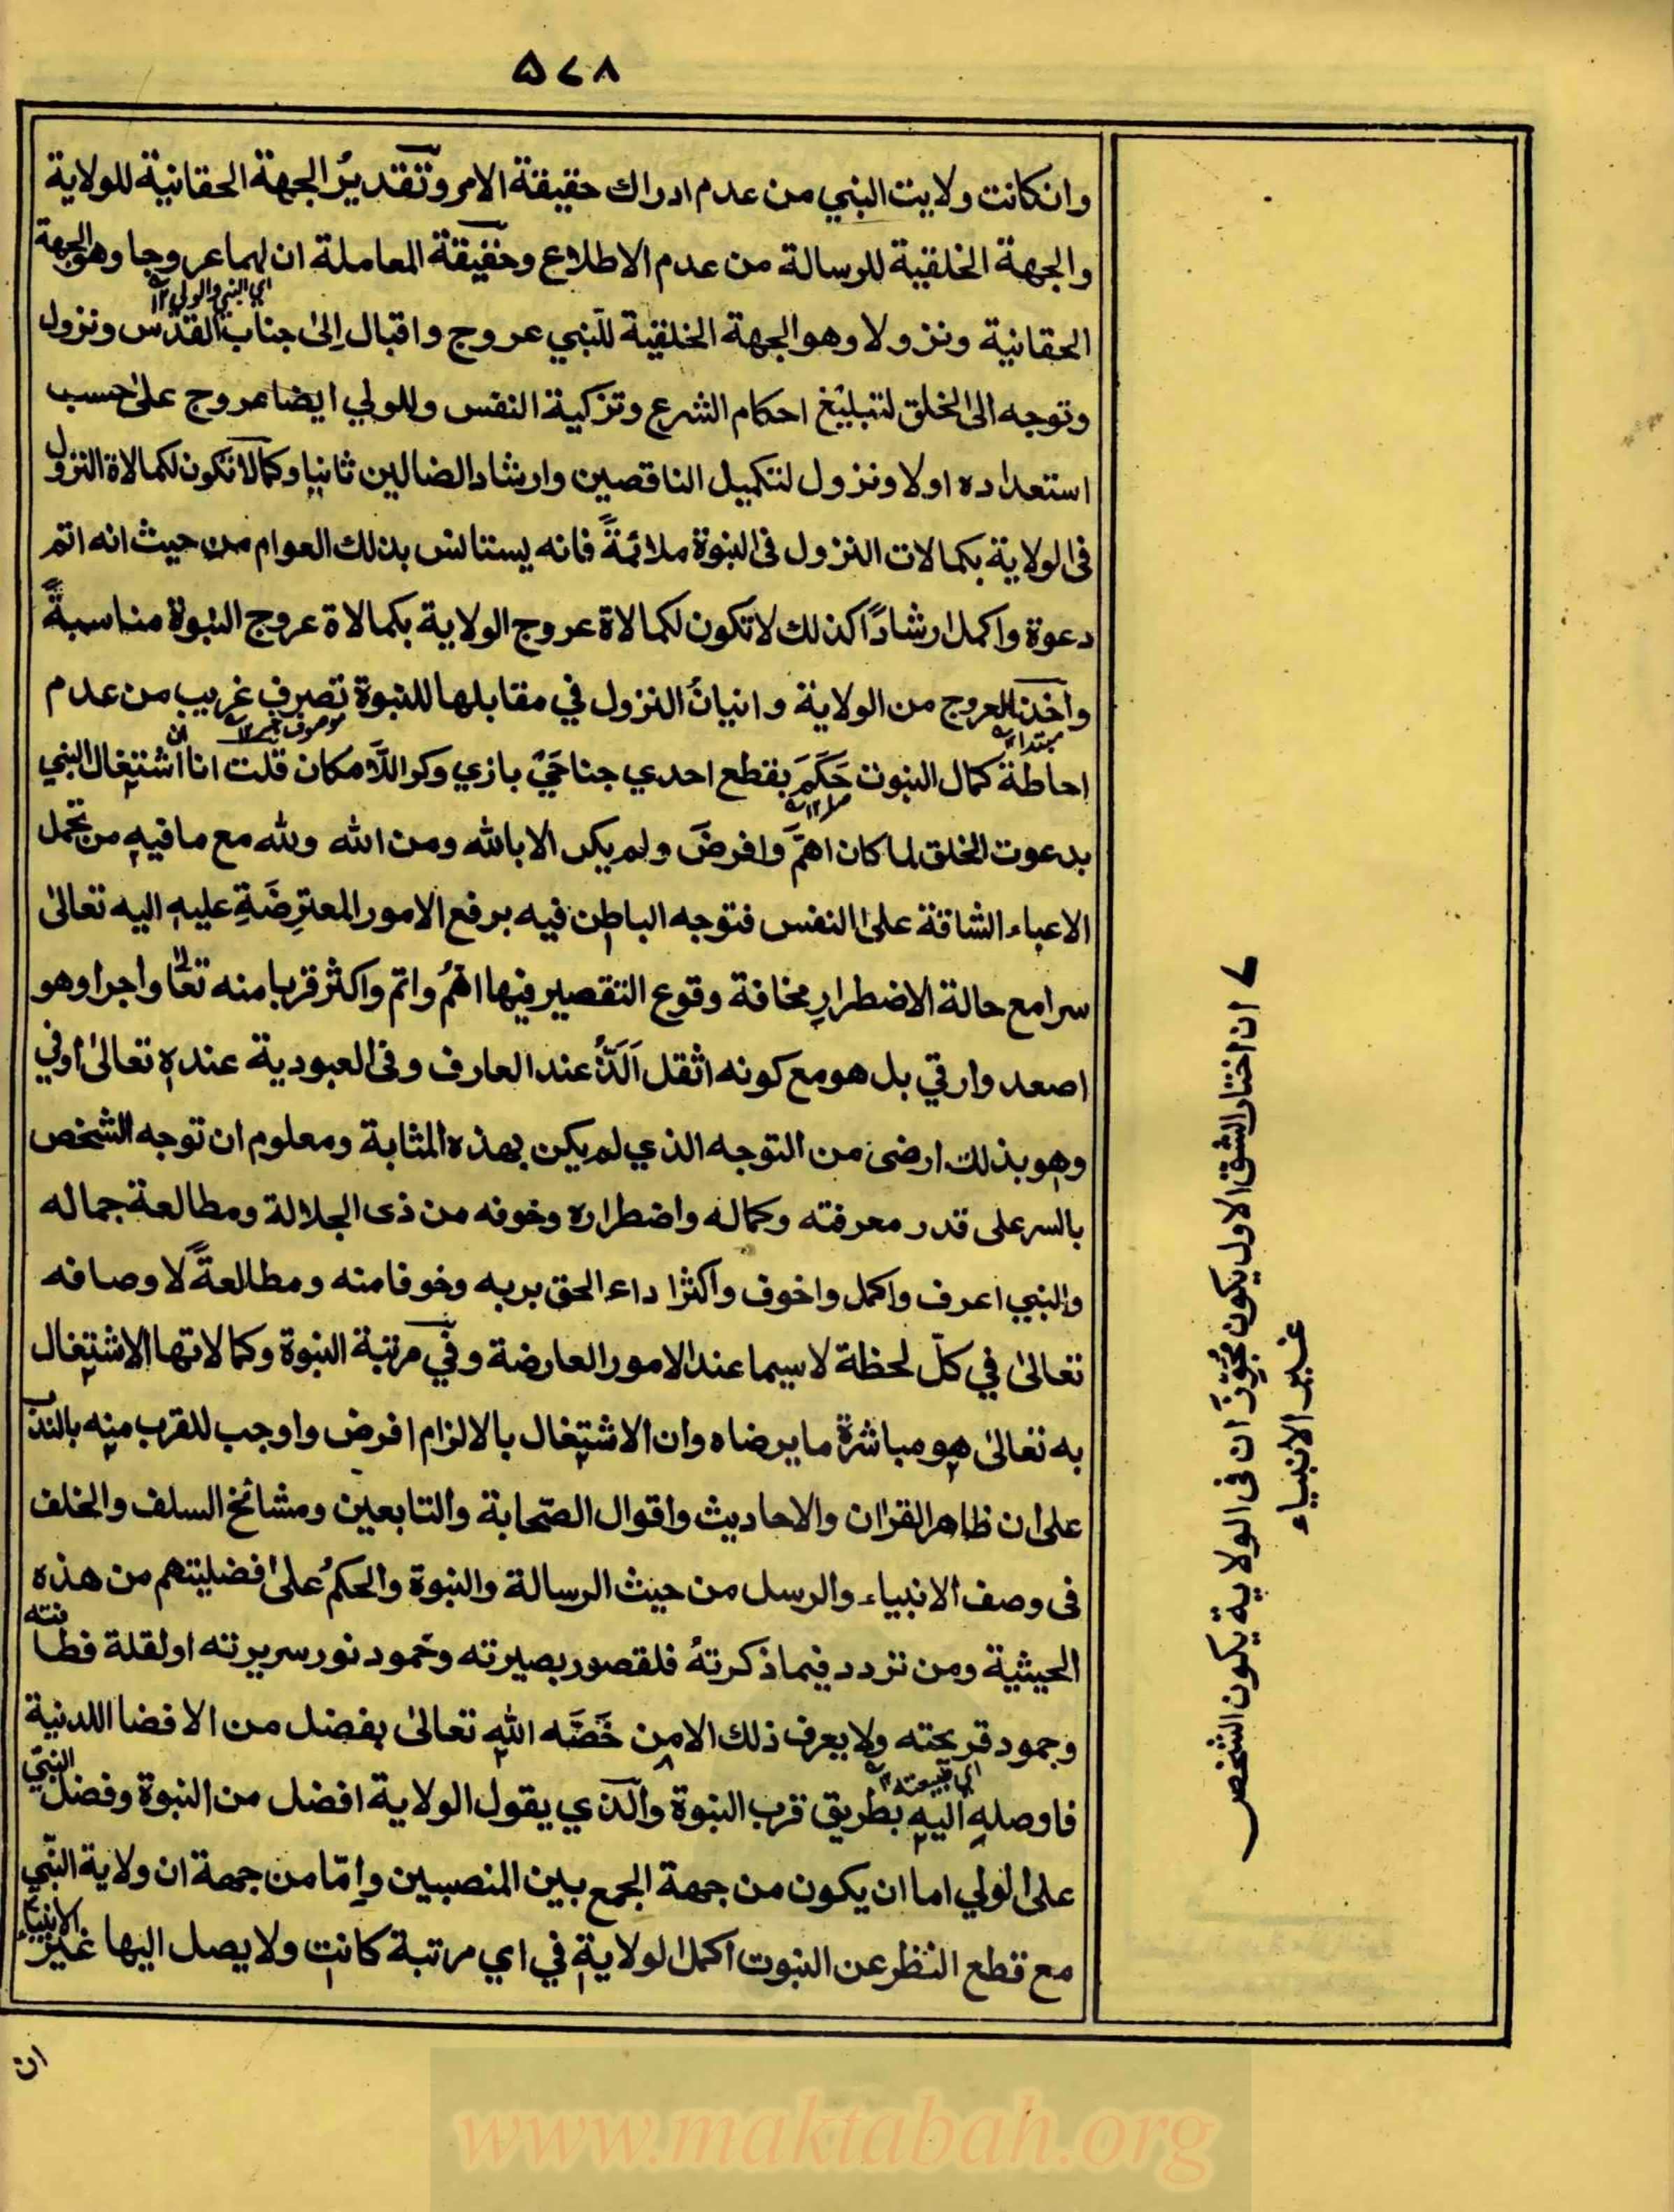 ٥٧٨
وانكانت ولايت النبي من عدم ادراك حقيقة الامر وتقديرُ الجهة الحقانية للولاية
والجهة الخلقية للرسالة من عدم الاطلاع وحقيقة المعاملة ان لهما عروجا وهو الجهة
اي النبي والولي ١٢
الحقانية ونزولا وهو الجهة الخلقية للنبي عروج واقبال اِلىٰ جناب القدس ونزول
وتوجه الى الخلق لتبليغ احكام الشرع وتزكية النفس وللولي ايضا عروج علىٰ حسب
استعداده اولا ونزول لتكميل الناقصين وارشاد الضالين ثانيا وكما لا تكون لكمالاة النزول
فى الولاية بكمالات النزول فى النبوة ملائمةً فانه يستانس بذلك العوام من حيث انه اتم
دعوة واكمل ارشادًا كذلك لا تكون لكمالاة عروج الولاية بكمالاة عروج النبوة مناسبةً
واخذ العروج من الولاية واتيانُ النزول في مقابلها للنبوة تصرف غريب من عدم
مبتدا ١٢
موصوف خبر ١٢
احاطة كمال النبوت حَكَمَ بقطع احدي جناحَيْ بازي وكر اللّامكان قلت انا اشتغال النبي
بدعوت الخلق لما كان اهمَّ وافرضَ ولم يكن الا بالله ومن الله ولله مع ما فيه من تحمل
الاعباء الشاقة علىٰ النفس فتوجه الباطن فيه برفع الامور المعترِضَةِ عليه اليه تعالىٰ
سرا مع حالة الاضطرارِ مخافة وقوع التقصير فيها اهمُّ واتم واكثر قربا منه تعالٰى واجرا وهو
اصعد وارقي بل هو مع كونه اثقل اَلَذُّ عند العارف وفى العبودية عنده تعالىٰ اوفي
وهو بذلك ارضى من التوجه الذي لم يكن بهذه المثابة ومعلوم ان توجه الشخص
بالسر على قدر معرفته وكماله واضطراره وخوفه من ذى الجلالة ومطالعة جماله
والنبي اعرف واكمل واخوف واكثر اداء الحق بربه وخوفا منه ومطالعةً لاوصافه
تعالىٰ في كلّ لحظة لاسيما عند الامور العارضة وفي مرتبة النبوة وكمالاتها الاشتغال
به تعالىٰ هو مباشرة ما يرضاه وان الاشتغال بالالزام افرض واوجب للقرب منه بالنذ
على ان ظاهر القران والاحاديث واقوال الصحابة والتابعين ومشائخ السلف والخلف
فى وصف الانبياء والرسل من حيث الرسالة والنبوة والحكمُ علىٰ افضليتهم من هذه
الحيثية ومن تردد فيما ذكرتهُ فلقصور بصيرته وخمود نور سريرته او لقلة فطانته
وجمود قريحته ولا يعرف ذلك الا من خَصَّه الله تعالىٰ بفضل من الافضا اللدنية
فاوصله اليه بطريق قرب النبوة والذي يقول الولاية افضل من النبوة وفضل النبيّ
على الولي اما ان يكون من جهة الجمع بين المنصبين وامّا من جهة ان ولاية النبّي
مع قطع النظر عن النبوت اكمل الولاية في اي مرتبة كانت ولا يصل اليها غير الانبياء
ان
ان اختار الشق الاول يكون مُجوِّزَ ان فى الولاية يكون الشخص
غير الانبياء
www.maktabah.org